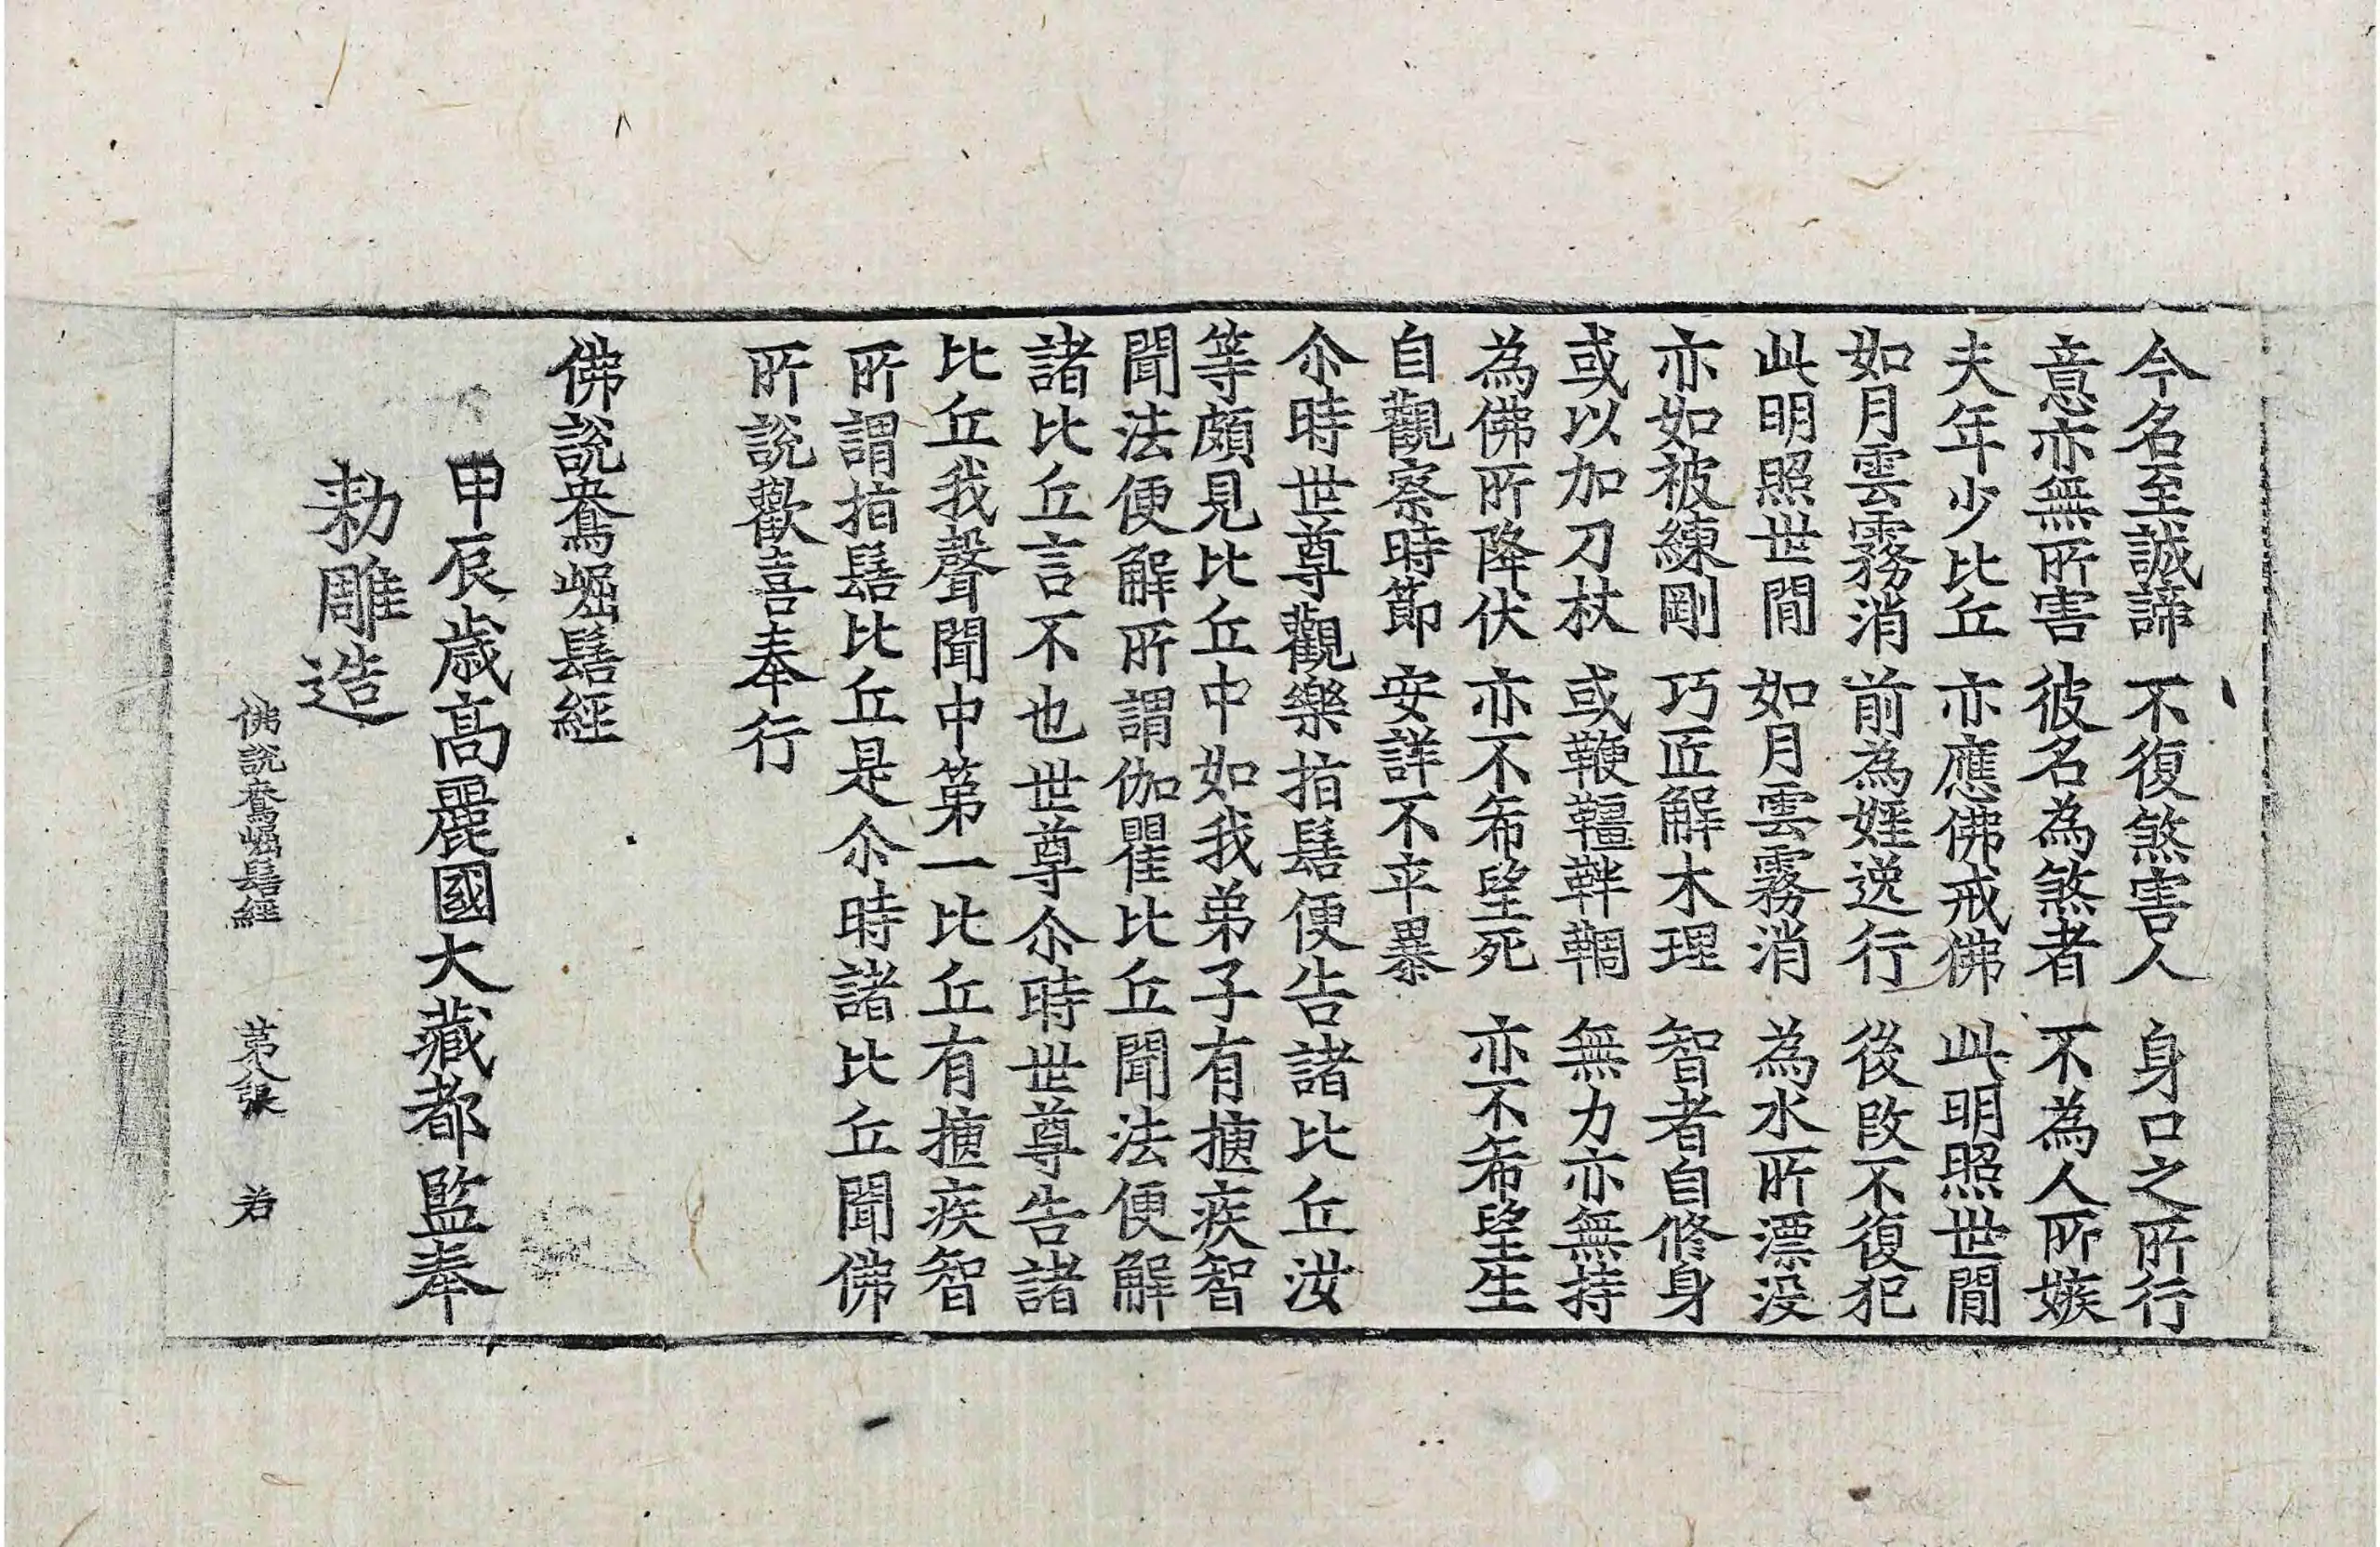 今名至誠諦　不復煞害人　身口之所行
意亦無所害　彼名為煞者　不為人所嫉
夫年少比丘　亦應佛戒佛　此明照世間
如月雲霧消　前為婬逸行　後改不復犯
此明照世間　如月雲霧消　為水所漂没
亦如被練剛　巧匠解木理　智者自修身
或以加刀杖　或鞭韁靽䩦　無力亦無持
為佛所降伏　亦不希望死　亦不希望生
自觀察時節　安詳不卒暴
尒時世尊觀樂指鬘便告諸比丘汝
等頗見比丘中如我弟子有揰疾智
聞法便解所謂伽瞿比丘聞法便解
諸比丘言不也世尊尒時世尊告諸
比丘我聲聞中第一比丘有揰疾智
所謂指鬘比丘是尒時諸比丘聞佛
所說歡喜奉行
佛說鴦崛鬘經
甲辰歳高麗國大藏都監奉
勅雕造
佛說鴦崛鬘經　第八張　若